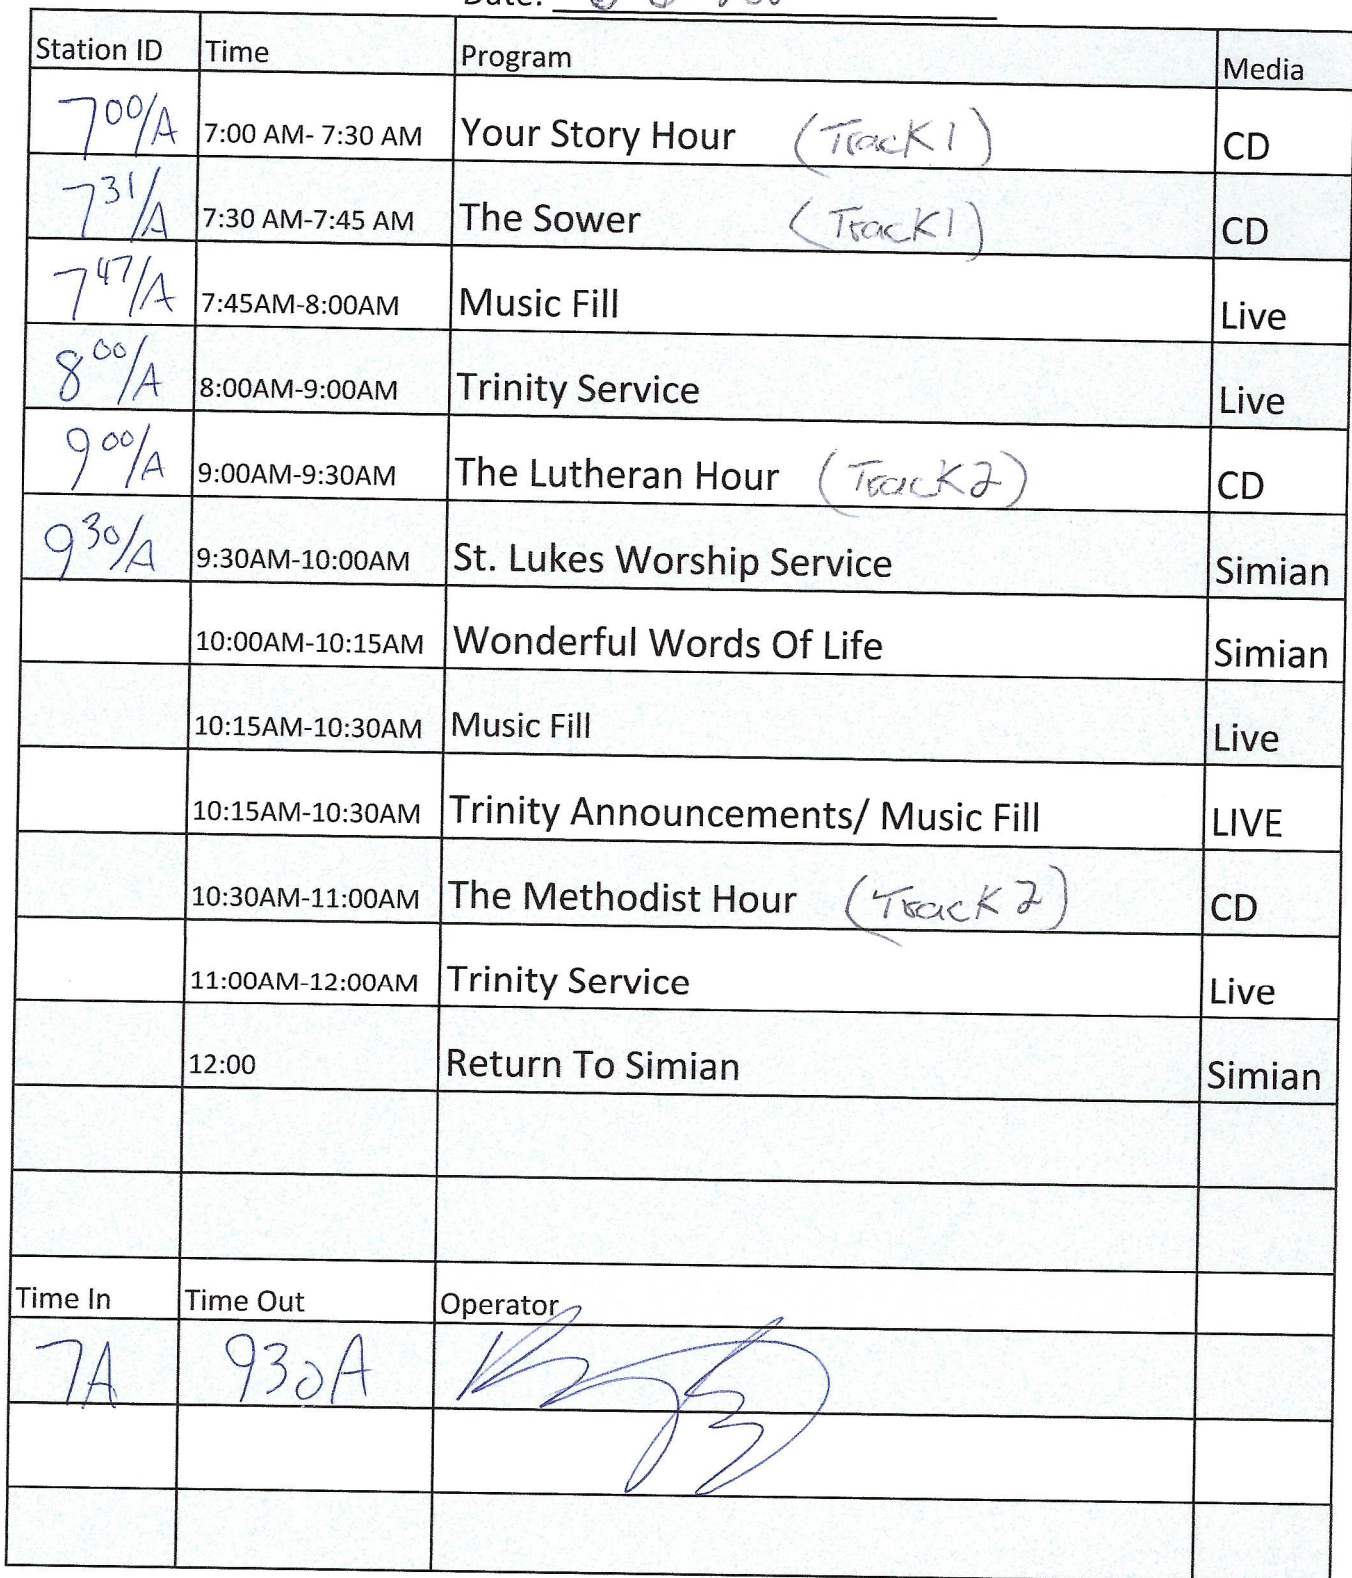 Date:
Station ID Time Program Media
7 00/A 7:00 AM- 7:30 AM Your Story Hour (Track 1) CD
7 31/A 7:30 AM-7:45 AM The Sower (Track 1) CD
7 47/A 7:45AM-8:00AM Music Fill Live
8 00/A 8:00AM-9:00AM Trinity Service Live
9 00/A 9:00AM-9:30AM The Lutheran Hour (Track 2) CD
9 30/A 9:30AM-10:00AM St. Lukes Worship Service Simian
10:00AM-10:15AM Wonderful Words Of Life Simian
10:15AM-10:30AM Music Fill Live
10:15AM-10:30AM Trinity Announcements/ Music Fill LIVE
10:30AM-11:00AM The Methodist Hour (Track 2) CD
11:00AM-12:00AM Trinity Service Live
12:00 Return To Simian Simian
Time In Time Out Operator
7A 930A